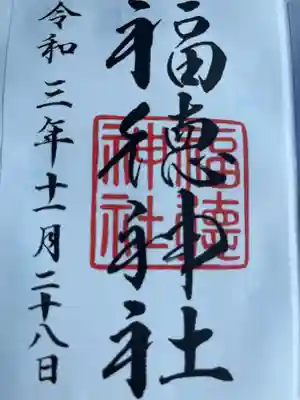 福徳神社
福徳神社
令和三年十一月二十八日